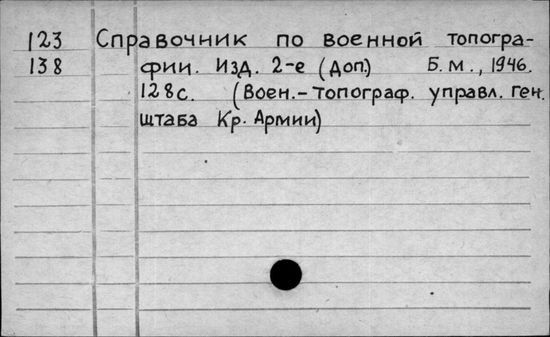 123 Справочник по военной топогра-
138 фии. Изд. 2-е (доп.) Б.м., 1946.
128с. (Воен.-топограф. управл. ген.
штаба Кр. Армии)